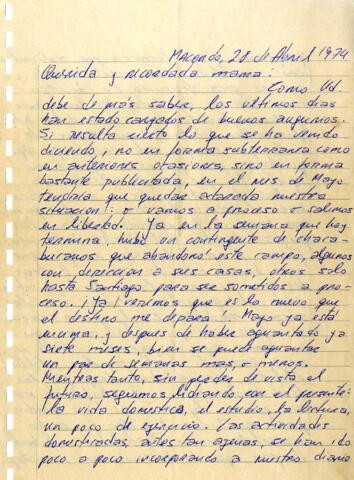 Macondo, 28 de Abril 1974
Querida y recordada mamá:
Como Ud.
debe de más saber, los últimos días
han estado cargados de buenos augurios.
Si resulta cierto lo que se ha venido
diciendo, no en forma subterránea como
en anteriores ocasiones, sino en forma
bastante publicitada, en el mes de Mayo
tendría que quedar aclarada nuestra
situación: o vamos a proceso o salimos
en libertad. Ya en la semana que hoy
termina, hubo un contingente de chaca-
bucanos que abandonó este campo, algunos
con dirección a sus casas, otros solo
hasta Santiago para ser sometidos a pro-
ceso. ¡Ya veremos que es lo nuevo que
el destino me depara! Mayo ya está
encima, y después de haber aguantado ya
siete meses, bien se puede aguantar
un par de semanas más, o menos.
Mientras tanto, sin perder de vista el
futuro, seguimos lidiando con el presente:
la vida doméstica, el estudio, la lectura,
un poco de ejercicio. Las actividades
domésticas, antes tan ajenas, se han ido
poco a poco incorporando a nuestro diario